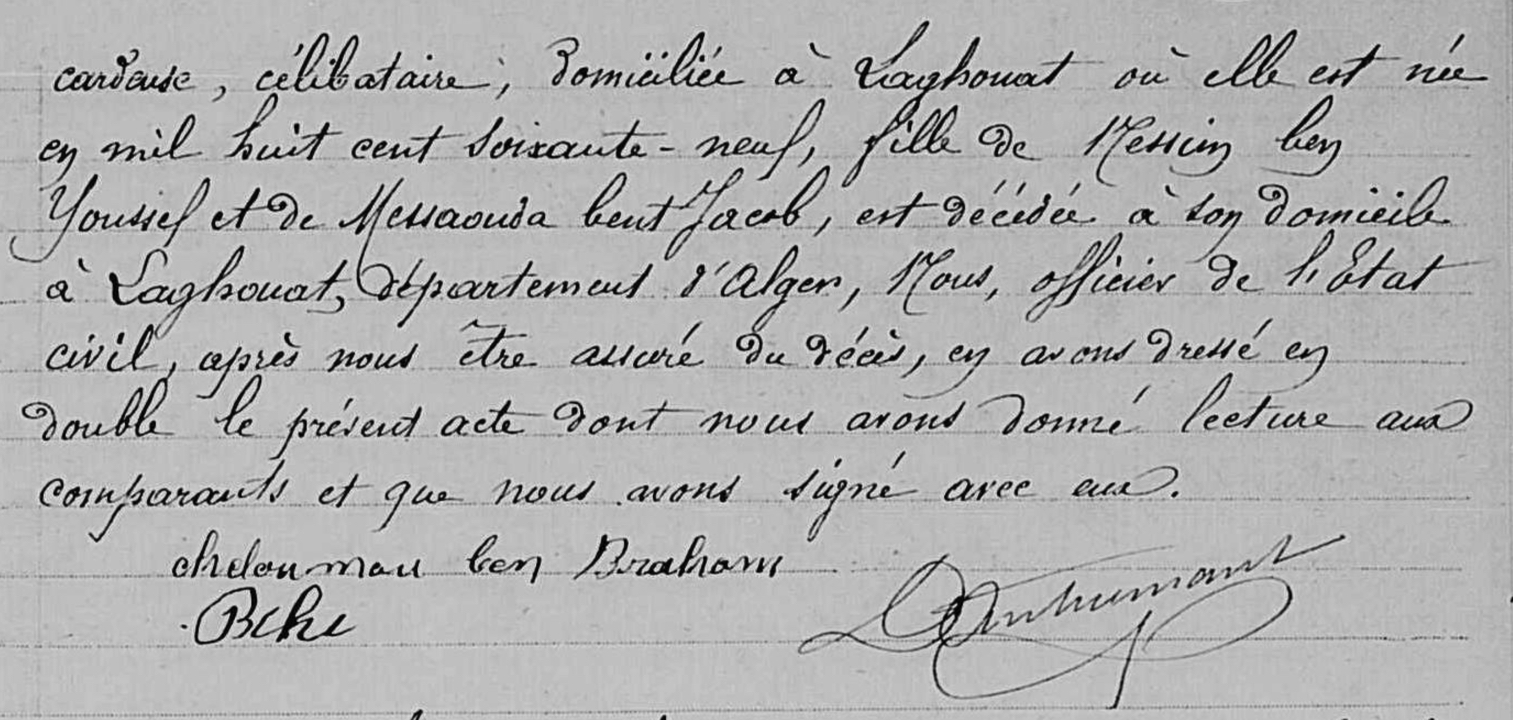 cardeuse, célibataire, domiciliée à Laghouat où elle est née
en mil huit cent soixante-neuf, fille de Nessim ben
Youssef et de Messaouda bent Jacob, est décédée à son domicile
à Laghouat, département d'Alger, Nous, officier de l'Etat
civil, après nous être assuré du décès, en avons dressé en
double le présent acte dont nous avons donné lecture aux
comparants et que nous avons signé avec eux.
chelouman ben Braham